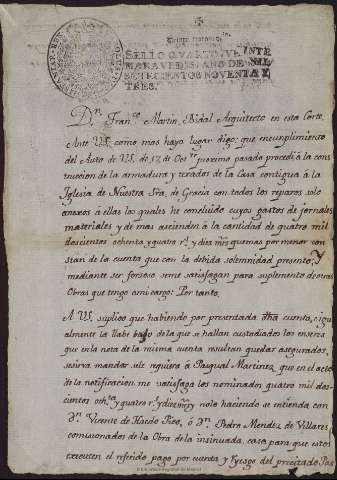 SELLO QVARTO, VEINTE
MARAVEDIS, AÑO DE MIL
SETECIENTOS NOVENTA Y
TRES.
Dn. Franco. Martin Bidal Arquitecto en esta Corte
Ante US. como mas haya lugar digo: que en cumplimento
del Auto de US. de 17 de Octre. proximo pasado procedi à la cons
truccion de la armadura y texados de la Casa contigua à la
Iglesia de Nuestra Sra. de Gracia con todos los reparos solo
anexos à ellas los quales he concluido cuyos gastos de jornales
materiales y de mas ascienden à la cantidad de quatro mil
doscientos ochenta y quatro rs. y diez mrs. que mas por menor cons
tarán de la cuenta que con la debida solemnidad presento; Y
mediante ser forzoso se me satisfagan para suplemento de otras
Obras que tengo à mi cargo: Por tanto.
A US. suplico que habiendo por presentada dha cuenta, e igu
almente la llabe bajo de la que se hallan custodiados los enseres
que en la nota de la misma cuenta resultan quedar asegurados,
se sirva mandar se le requiera à Pasqual Martinez que en el acto
de la notificacion me satisfaga los nominados quatro mil dos
cientos ochta. y quatro rs. y diez mrs. y no lo haciendo se entienda con
Dn. Vicente de Haedo Pico, ò Dn. Pedro Mendez de Villares
comisionados de la Obra de la insinuada casa para que estos
executen el referido pago por cuenta y riesgo del precitado Pas